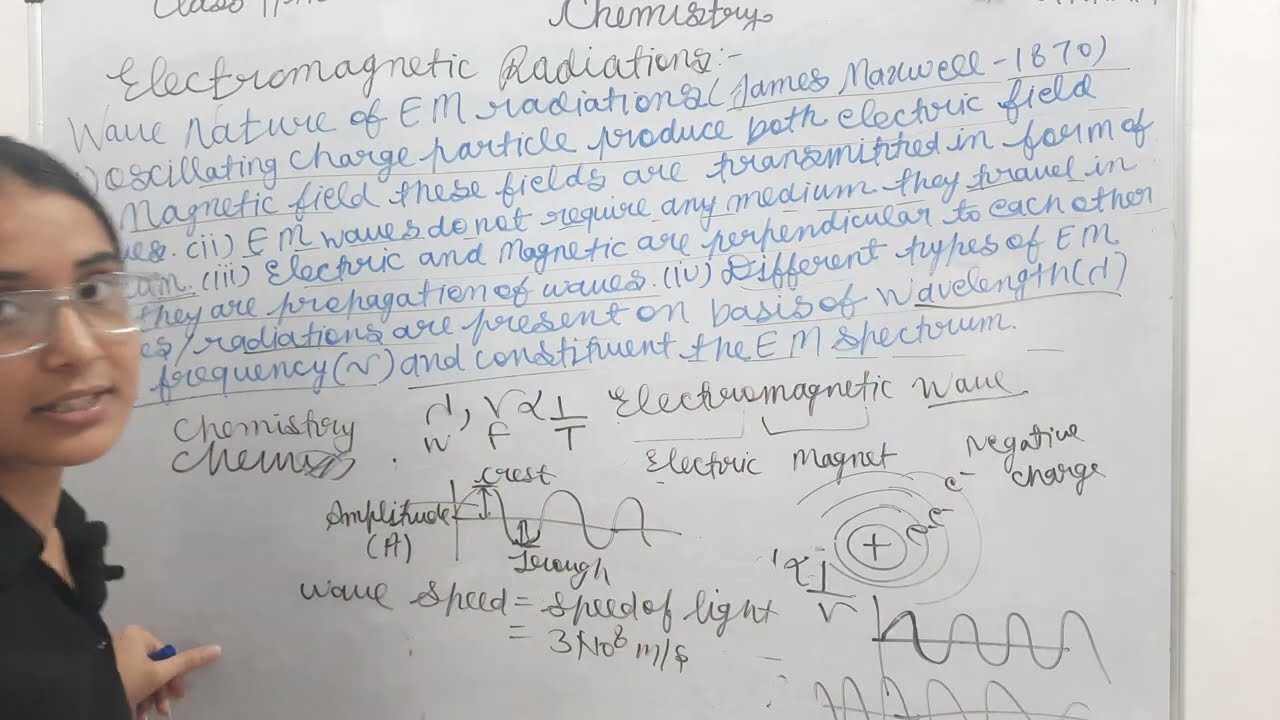 Class 11th
Chemistry
Electromagnetic Radiations:-
Wave Nature of EM radiations (James Maxwell - 1870)
) oscillating charge particle produce both electric field
Magnetic field these fields are transmitted in form of
ues. (ii) EM waves do not require any medium they travel in
uum. (iii) Electric and Magnetic are perpendicular to each other
they are propagation of waves. (iv) Different types of EM
es/radiations are present on basis of wavelength(λ)
frequency(ν) and constituent the EM spectrum.
Chemistry λ, ν ∝ 1/T Electromagnetic Wave
Chem w F
Electric Magnet Negative charge
Crest
e-
Amplitude
(A)
e- e-
+
Trough
λ ∝ 1/ν
Wave speed = speed of light
= 3×10⁸ m/s